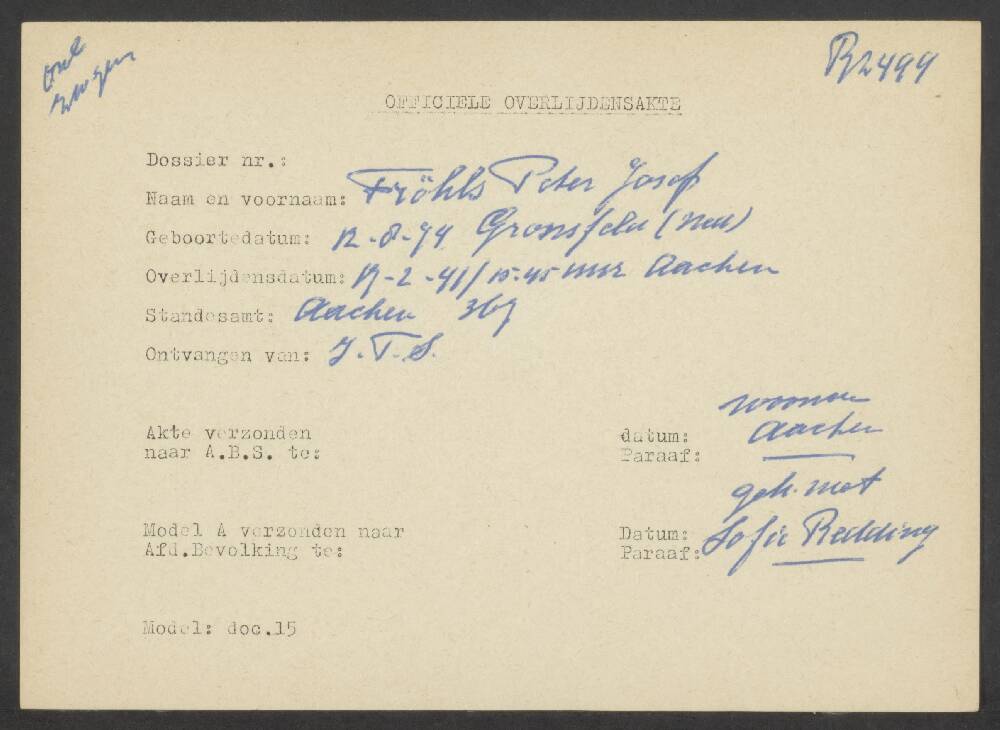 R2499
OFFICIELE OVERLIJDENSAKTE
Dossier nr.:
Naam en voornaam: Fröhls Peter Josef
Geboortedatum: 12-8-94 Gronsfeld (Ned)
Overlijdensdatum: 19-2-41/15.45 uur Aachen
Standesamt: Aachen 367
Ontvangen van: I.T.S.
woonde
Akte verzonden datum: Aachen
naar A.B.S. te: Paraaf:
geh. met
Model A verzonden naar Datum: Sofie Redding
Afd.Bevolking te: Paraaf:
Model: doc.15